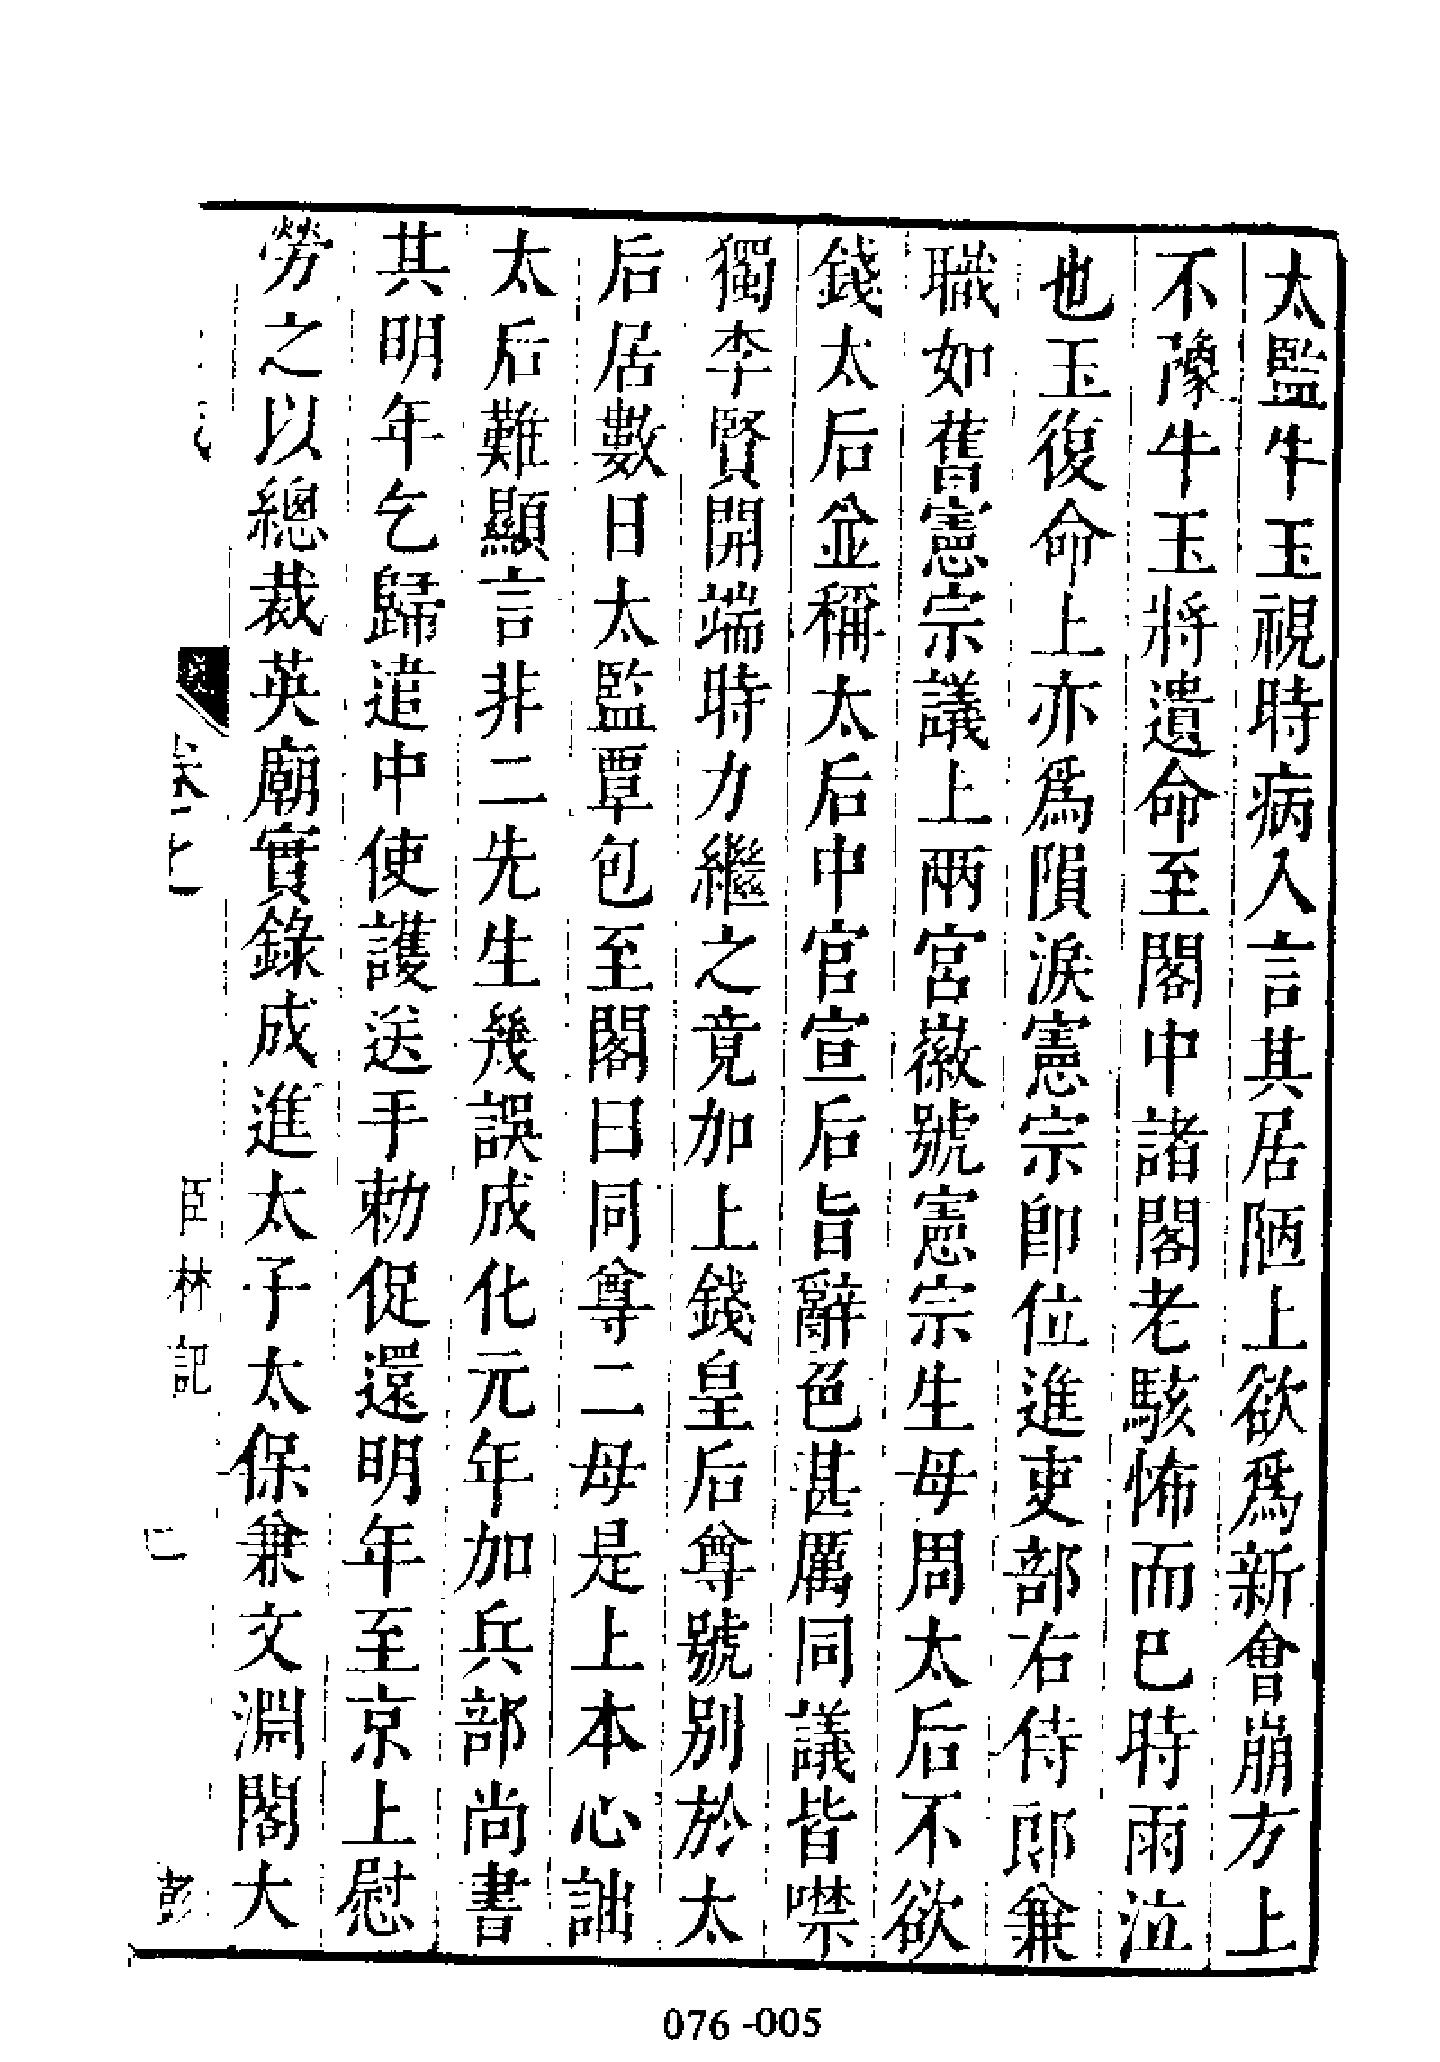 太監牛玉視時病入言其居陋上欲爲新會崩方上
不豫牛玉將遺命至閣中諸閣老駭怖而巳時雨泣
也玉復命上亦爲隕淚憲宗卽位進吏部右侍郎兼
職如舊憲宗議上兩宮徽號憲宗生母周太后不欲
錢太后並稱太后中官宣后旨辭色甚厲同議皆噤
獨李賢開端時力繼之竟加上錢皇后尊號別於太
后居數日太監覃包至閣曰同尊二母是上本心詘
太后難顯言非二先生幾誤成化元年加兵部尚書
其明年乞歸遣中使護送手勅促還明年至京上慰
勞之以總裁英廟實錄成進太子太保兼文淵閣大
臣林記
彭
076-005